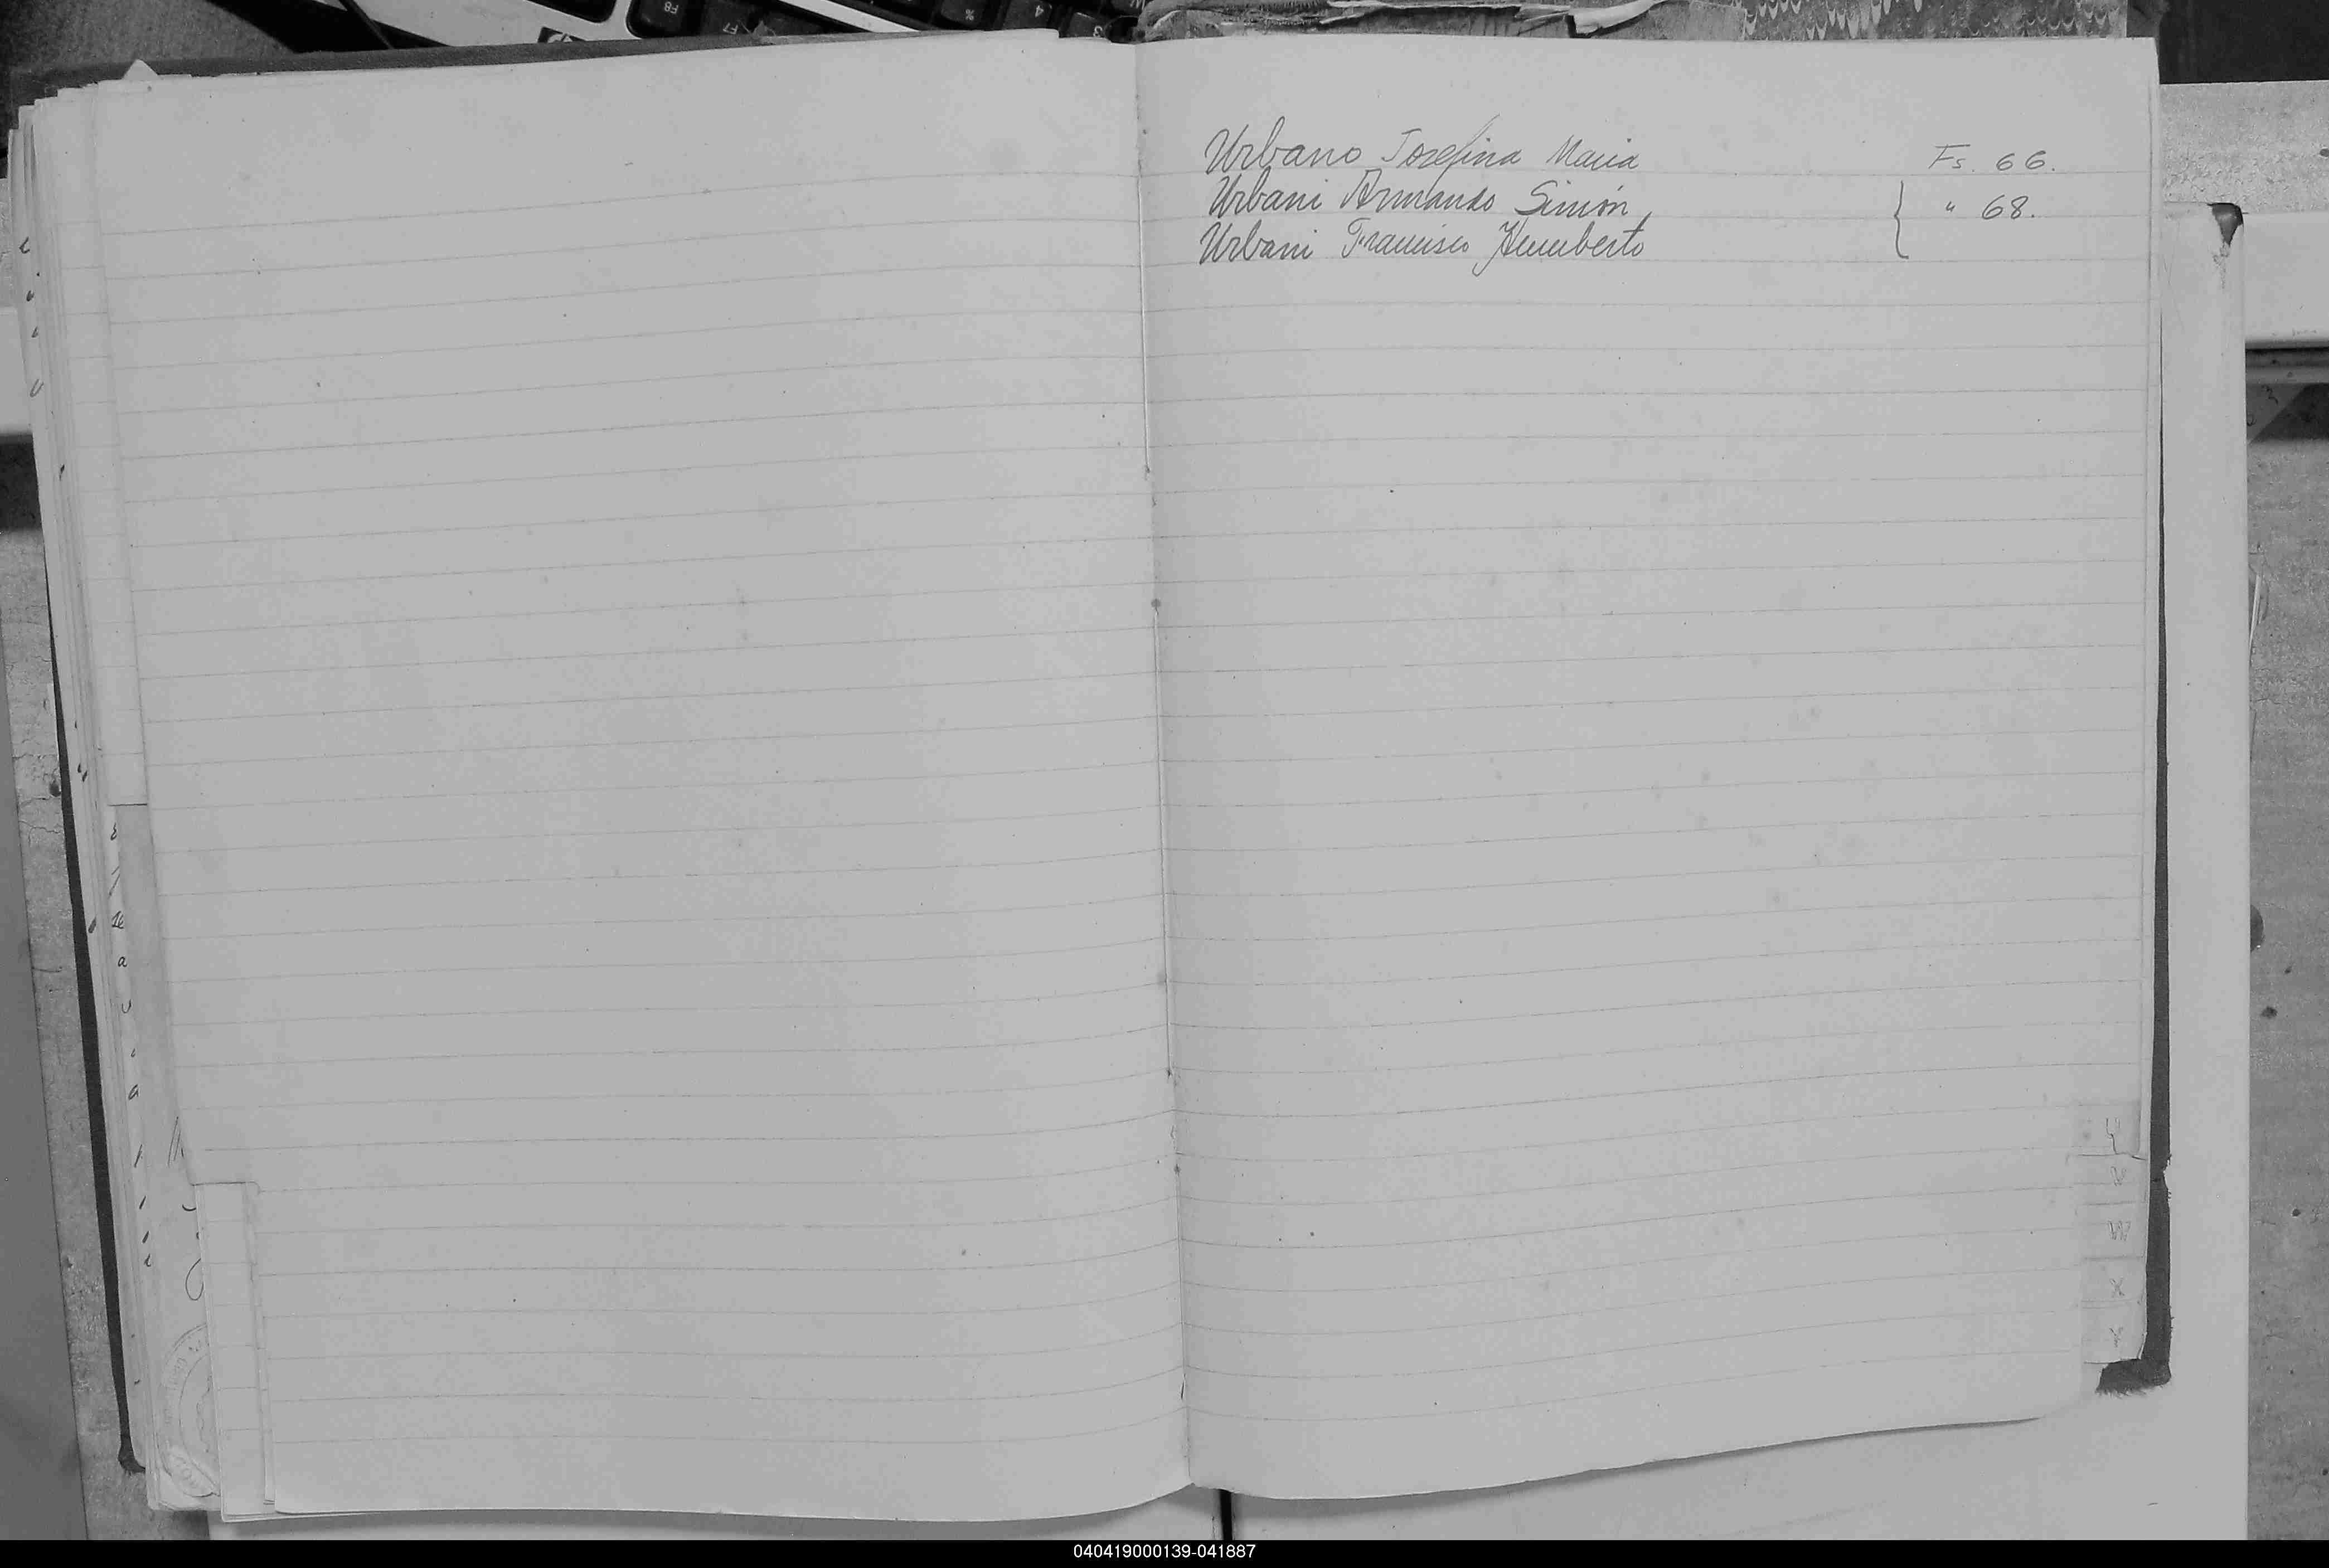 Urbano Josefina Maria Fs. 66.
Urbani Armando Simón, { " 68.
Urbani Francisco Humberto
W
X
Y
040419000139-041887